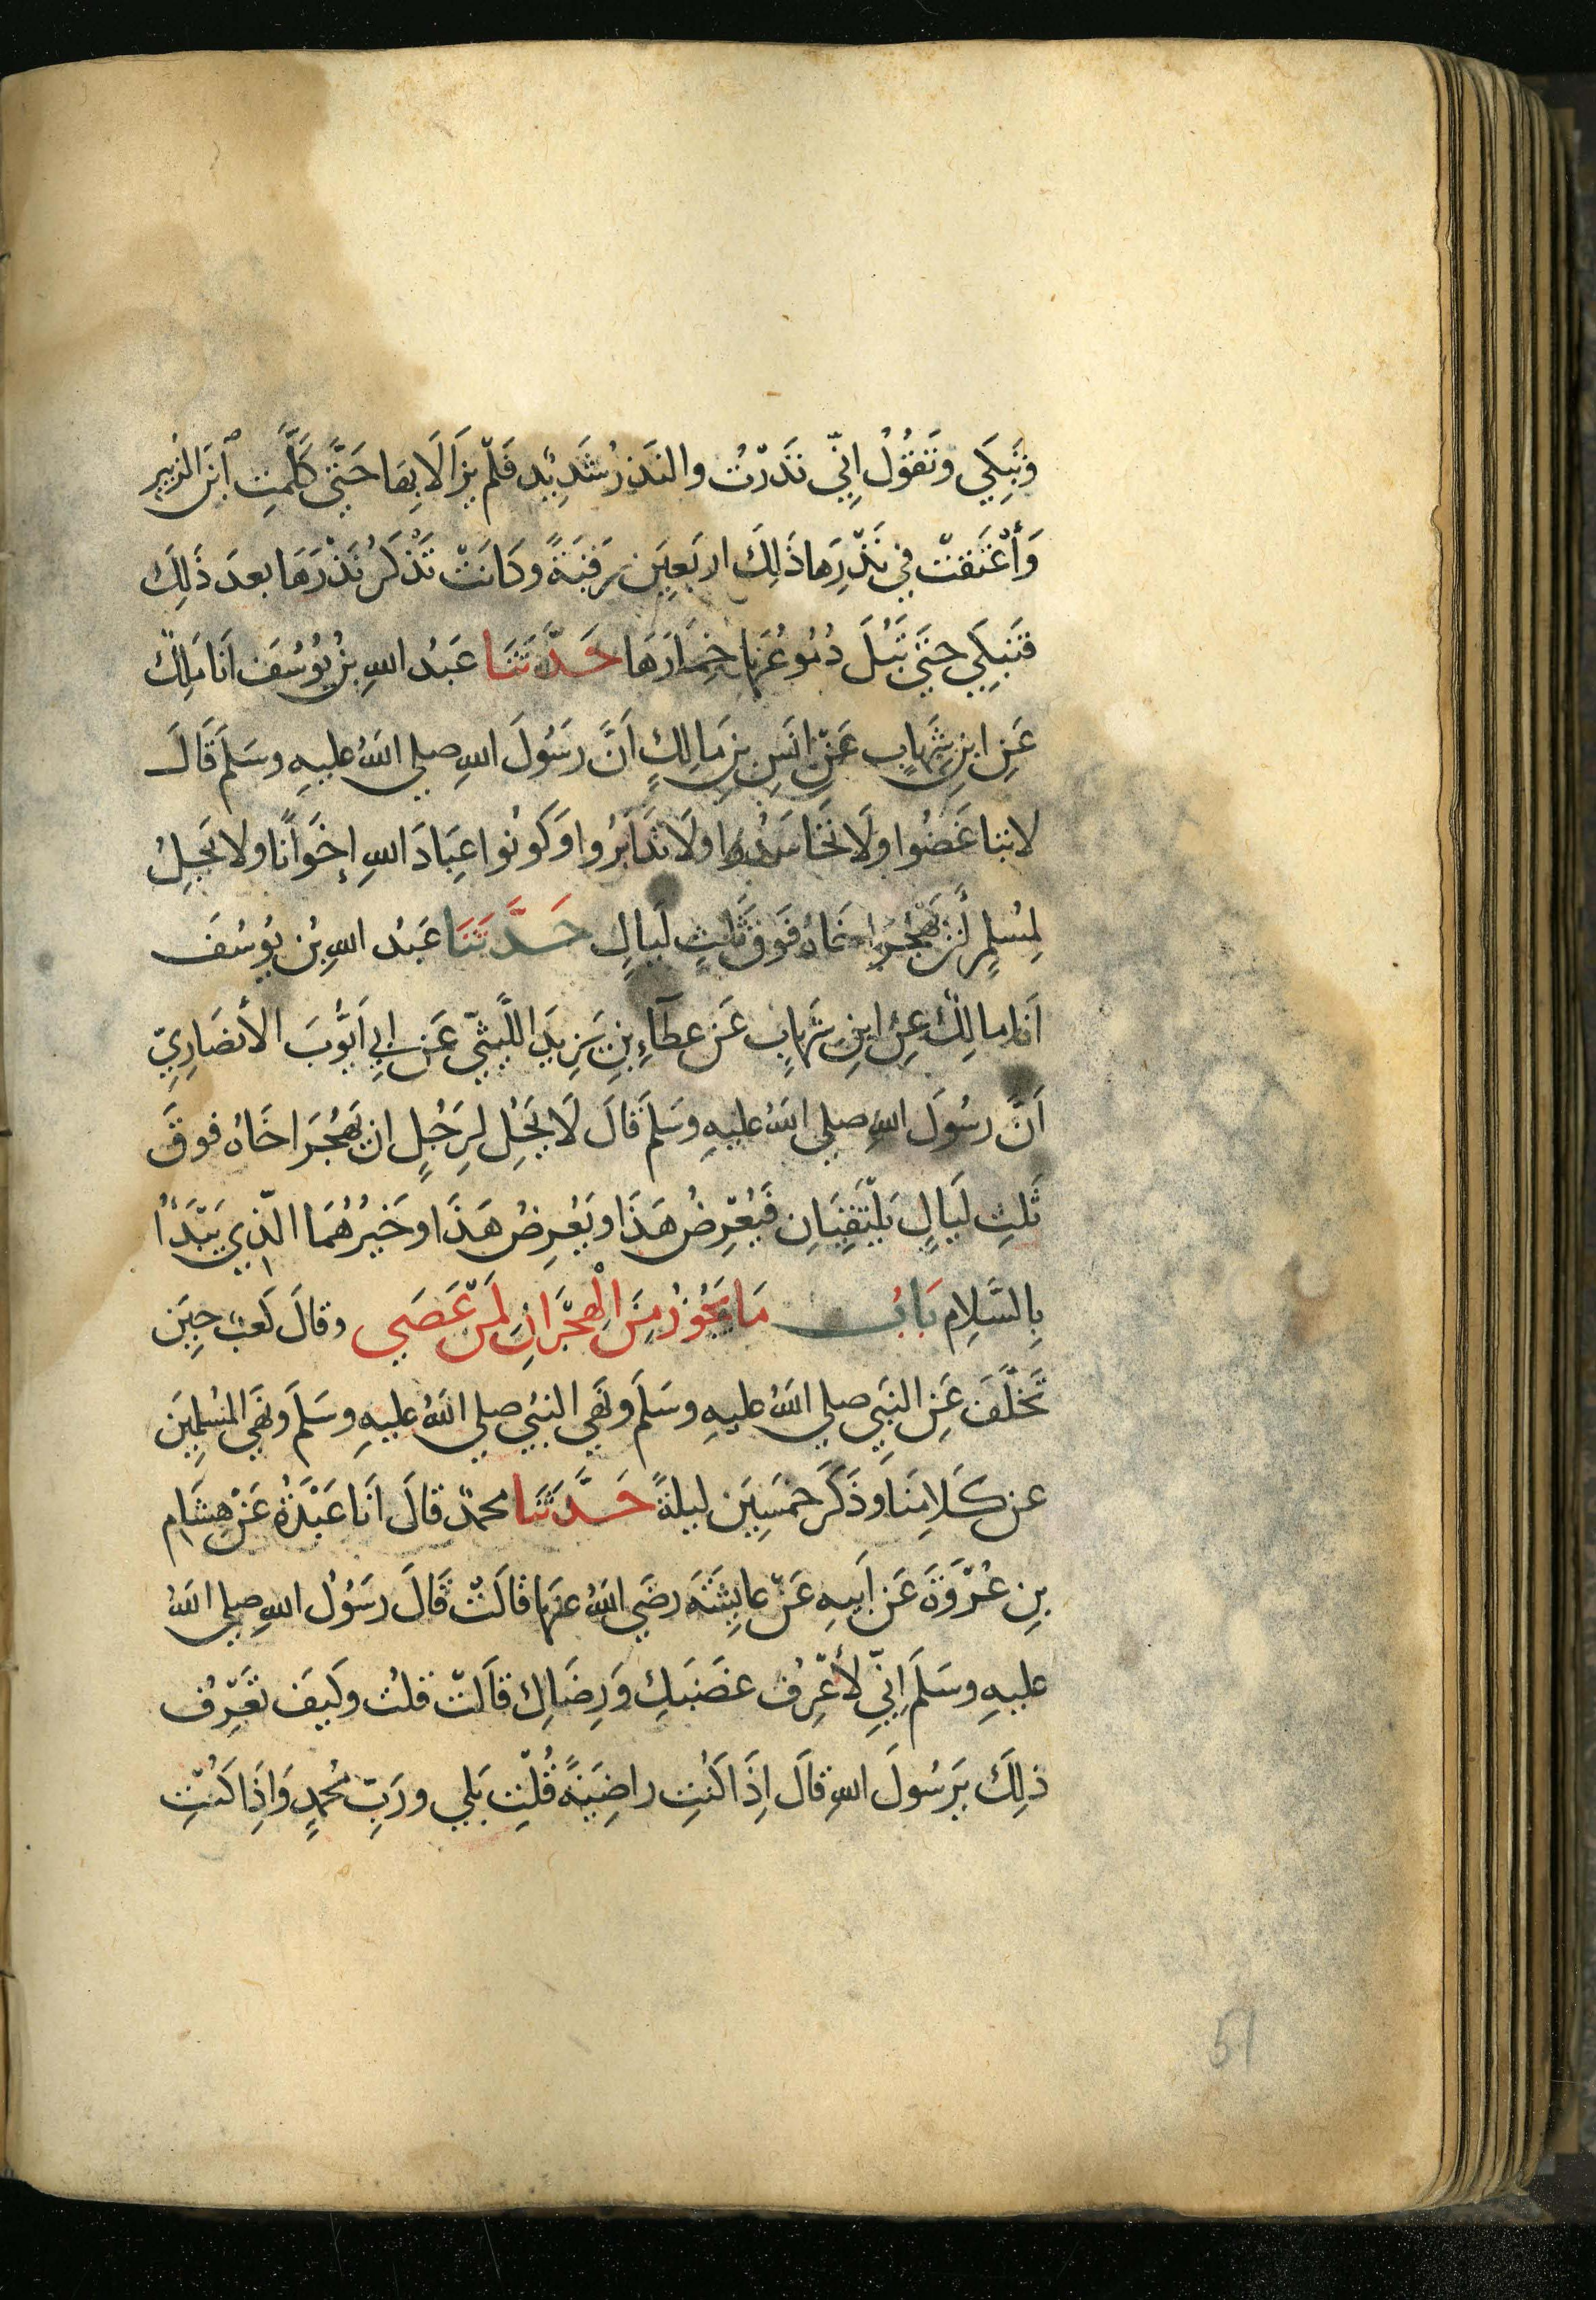 وَتَبكِي وتَقُولُ اِنِّي نَذَرْتُ والنَذرُ شَدِيْد فَلَمْ يَزَالَا بِهَا حَتَّى كَلَّمَتِ ابْنَ الزبير
وَأَعْتَقَتْ في نَذْرِهَا ذَلِكَ اربَعِيَن رَقَبَةً وكَانَتْ تَذْكُر نَذْرَهَا بعدَ ذَلِكَ
فَتَبكِي حتَى تَبُلَ دُمُوعُهَا خِمَارَهَا حَدَّثَنَا عَبدُ اللهِ بنُ يُوْسُفَ انَا مَلِكٌ
عَنِ ابنِ شِهَابٍ عَنْ انَسِ بنِ مَالِكٍ اَنَّ رسُولَ اللهِ صلي اللهُ عليهِ وسَلَمَ قَالَ
لا تباغَضُوا ولَا تَحَاسَدُوا ولَا تَدَابَرُوا وَكُونُوا عِبَادَ اللهِ إخوَانًا ولا يَحِلُ
لِمُسلِمٍ أَنْ يَهْجُرَ اخَاهُ فَوقَ ثَلثِ لَيالٍ حَدَّثَنَا عَبدُ اللهِ بنُ يُوسُفَ
اَنَا مالِكٌ عنِ ابنِ شهَابٍ عَن عطَآءِ بنِ يَزِيدَ اللَّيثيِّ عَن ابِي اَيُّوبَ الأنصَارِيِّ
اَنَّ رسُولَ اللهِ صلي اللهُ عليهِ وسَلَمَ قالَ لَا يَحِلُ لِرَجُلٍ ان يَهْجُرَ اخَاهُ فوقَ
ثَلثِ لَيالٍ يَلْتَقِيَانِ فَيُعْرِضُ هَذَا ويُعْرِضُ هَذَا وخَيرُهُمَا الَّذِي يَبْدَأُ
بِالسَلامِ بَابُ مَا يَجُوزُ مِنَ الْهِجْرَانِ لِمَنْ عَصَي وقالَ كَعبٌ حِيَن
تَخَلَّفَ عَنِ النَبِي صلي اللهُ عليهِ وسَلَمَ ونَهَي النبيُ صلي اللهُ عليهِ وسَلَمَ ونَهَي المُسْلِمِيَن
عن كَلَامِنَا وذَكَرَ خمسِيَن ليلةً حَدَّثَنَا محمدٌ قالَ اَنَا عَبْدَةُ عَنْ هِشَام
بنِ عُرْوَةَ عَن اَبيهِ عَنْ عايِشَةَ رضَي اللهُ عنهَا قالَتْ قَالَ رسُولُ اللهِ صلي اللهُ
عليهِ وسَلَمَ اِنِّي لَأَعْرِفُ غضَبَكِ وَرِضَاكِ قاَلتْ قلتُ وكَيفَ تَعْرِفُ
ذلِكَ يَرسُولَ اللهِ قالَ اِذَا كنتِ راضِيَةً قُلْتِ بَلي ورَبِّ مُحمدٍ وَاِذَا كُنْتِ
51